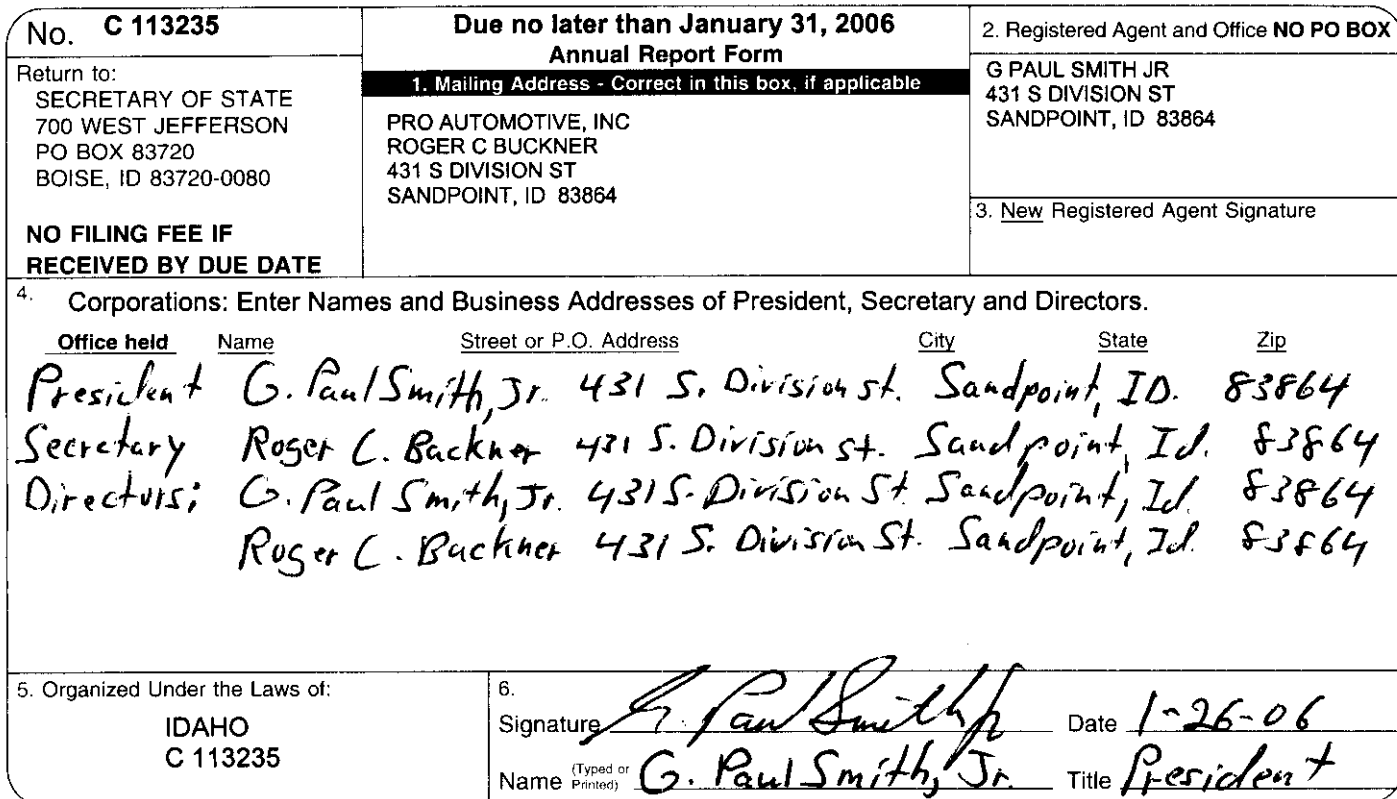 No. C 113235
Return to:
SECRETARY OF STATE
700 WEST JEFFERSON
PO BOX 83720
BOISE, ID 83720-0080
NO FILING FEE IF
RECEIVED BY DUE DATE
Due no later than January 31, 2006
Annual Report Form
1. Mailing Address - Correct in this box, if applicable
PRO AUTOMOTIVE, INC
ROGER C BUCKNER
431 S DIVISION ST
SANDPOINT, ID 83864
2. Registered Agent and Office NO PO BOX
G PAUL SMITH JR
431 S DIVISION ST
SANDPOINT, ID 83864
3. New Registered Agent Signature
4. Corporations: Enter Names and Business Addresses of President, Secretary and Directors.
Office held Name Street or P.O. Address City State Zip
President G. Paul Smith, Jr. 431 S. Division st. Sandpoint, ID. 83864
Secretary Roger C. Buckner 431 S. Division st. Sandpoint, Id. 83864
Directors: G. Paul Smith, Jr. 431 S. Division St. Sandpoint, Id. 83864
Roger C. Buckner 431 S. Division St. Sandpoint, Id. 83864
5. Organized Under the Laws of:
IDAHO
C 113235
6.
Signature G. Paul Smith Jr Date 1-26-06
Name (Typed or Printed) G. Paul Smith, Jr. Title President